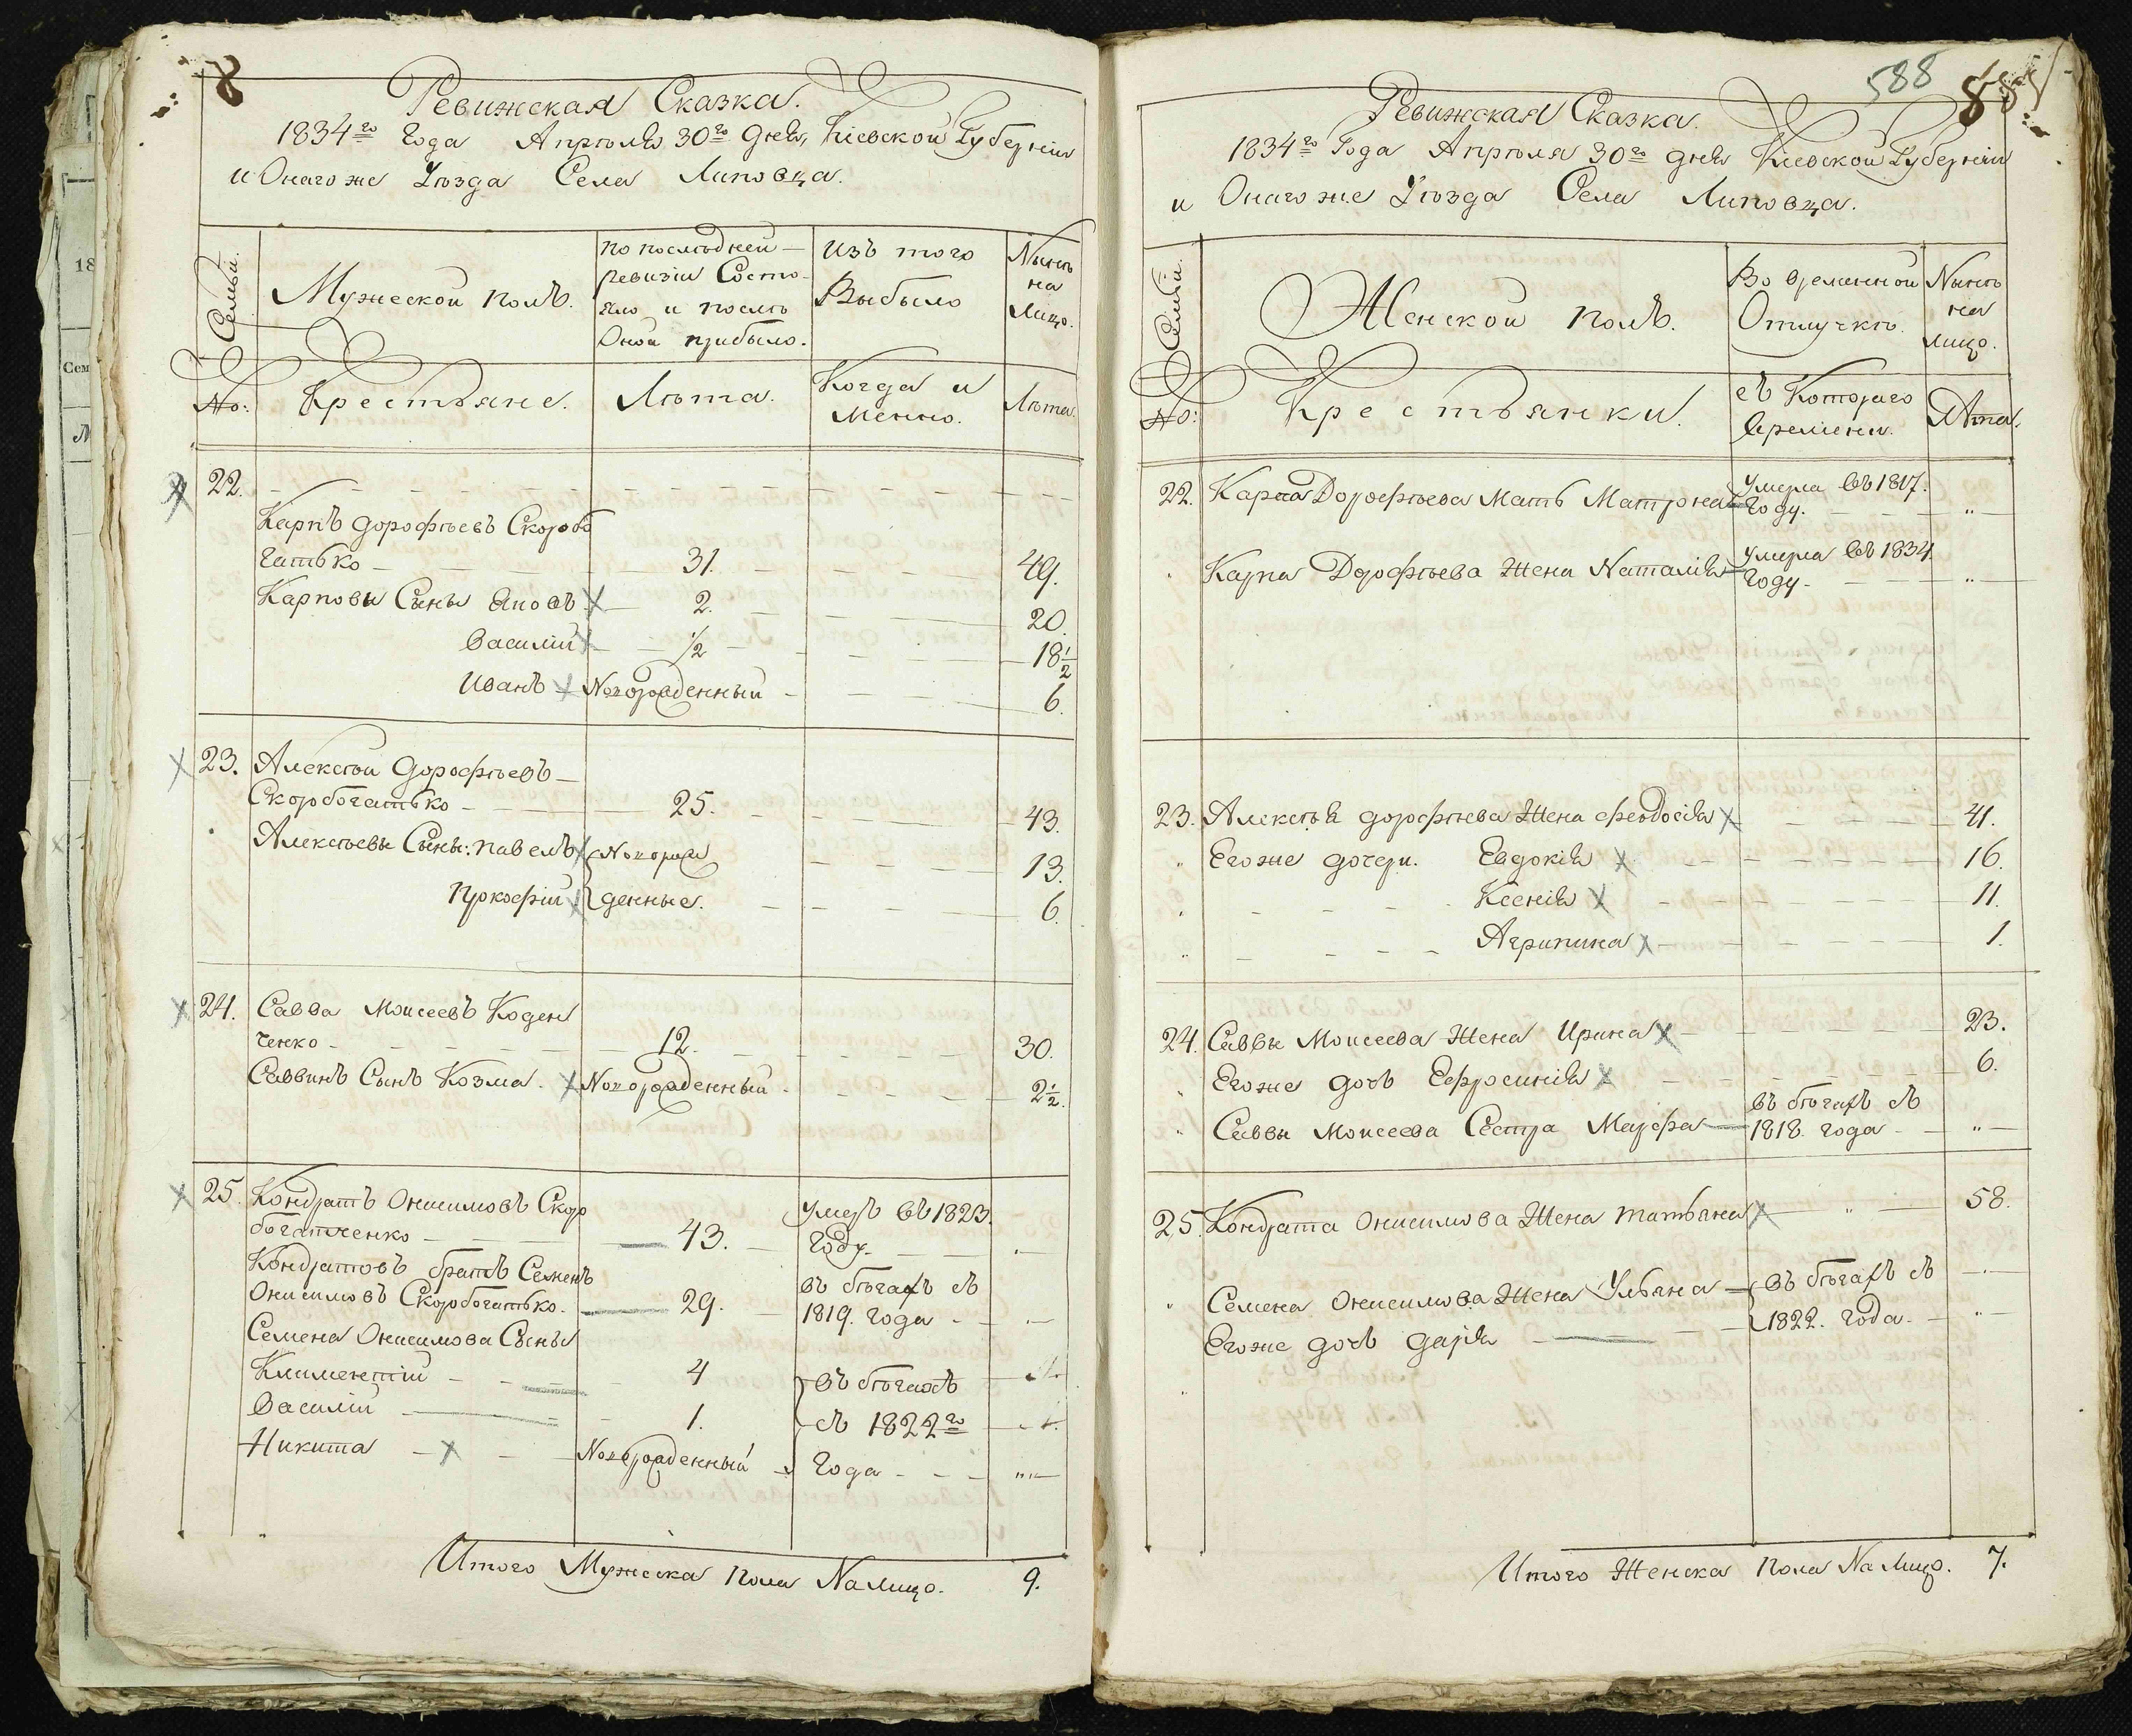 8
Ревижская Сказка.
1834го Года Апрѣля 30го дня, Кіевской Губерніи
и Онагоже Уѣзда Села Липовца.
Семьи.
Мужеской полъ.
По послѣдней
ревизіи Состо-
яло и послѣ
Оной прибыло.
Изъ того
Выбыло
Нынѣ
на
Лицо.
No:
Крестьяне.
Лѣта.
Когда и
Менно.
Лѣта.
22.
Карпъ Дорофѣевъ Скоробо
гатько 31. 49.
Карповы Сыны Яковъ 2. 20.
Василій 1/2 18 1/2
Иванъ Новорожденный 6.
23. Алексѣй Дорофѣевъ
Скоробогатько 25. 43.
Алексѣевы Сыны: Павелъ Новорож 13.
Прокофій денные. 6.
24. Савва Моисеевъ Коден
ченко 12. 30.
Саввинъ Сынъ Козма. Новорожденный 2 1/2.
25. Кондратъ Онисимовъ Скоро
богатченко 43. Умеръ въ 1823.
Году.
Кондратовъ братъ Семенъ
Онисимовъ Скоробогатько. 29. въ бѣгахъ съ
1819. года
Семена Онисимова Сыны
Климентій 4 въ бѣгахъ
Василій 1. съ 1822го
Никита Новорожденный Года
Итого Мужеска пола На лицо. 9.
588
Ревижская Сказка.
1834го Года Апрѣля 30го дня Кіевской Губерніи
и Онагоже Уѣзда Села Липовца.
Семьи.
Женской полъ.
Во временной
Отлучкѣ.
Нынѣ
на
лицо.
No:
Крестьянки.
съ Котораго
времени.
Лѣта.
22. Карпа Дорофѣева Мать Матрона Умерла въ 1817.
Году.
Карпа Дорофѣева Жена Наталія Умерла въ 1834
Году.
23. Алексѣя Дорофѣева Жена Феодосія 41.
Егоже дочери. Евдокія 16.
Ксенія 11.
Агрипина 1.
24. Саввы Моисеева Жена Ирина 23.
Егоже дочь Ефросинія 6.
Саввы Моисеева Сестра Марфа въ бѣгахъ съ
1818. года
25. Кондрата Онисимова Жена Татьяна 58.
Семена Онисимова Жена Ульяна въ бѣгахъ съ
Егоже дочь Дарія 1822. года
Итого Женска пола На лицо. 7.